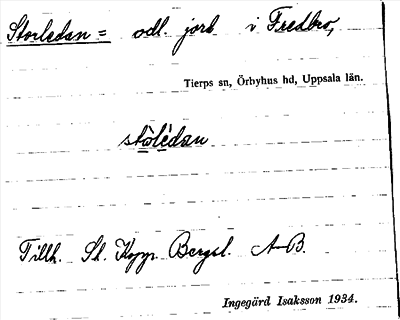 Storledan = odl. jord i Fredbro,
Tierps sn, Örbyhus hd, Uppsala län.
stòlèdan
Tillh. St. Kopp. Bergsl. A-B.
Ingegärd Isaksson 1934.